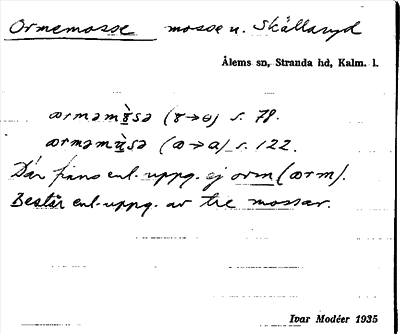 Ormemosse mosse n. Skällaryd
Ålems sn, Stranda hd, Kalm. l.
ormǝmɤ̀sǝ (ɤ→ɵ) s. 78.
ormǝmùsǝ (o→a) s. 122.
Där finns enl. uppg. ej orm (orm).
Består enl. uppg. av tre mossar.
Ivar Modéer 1935